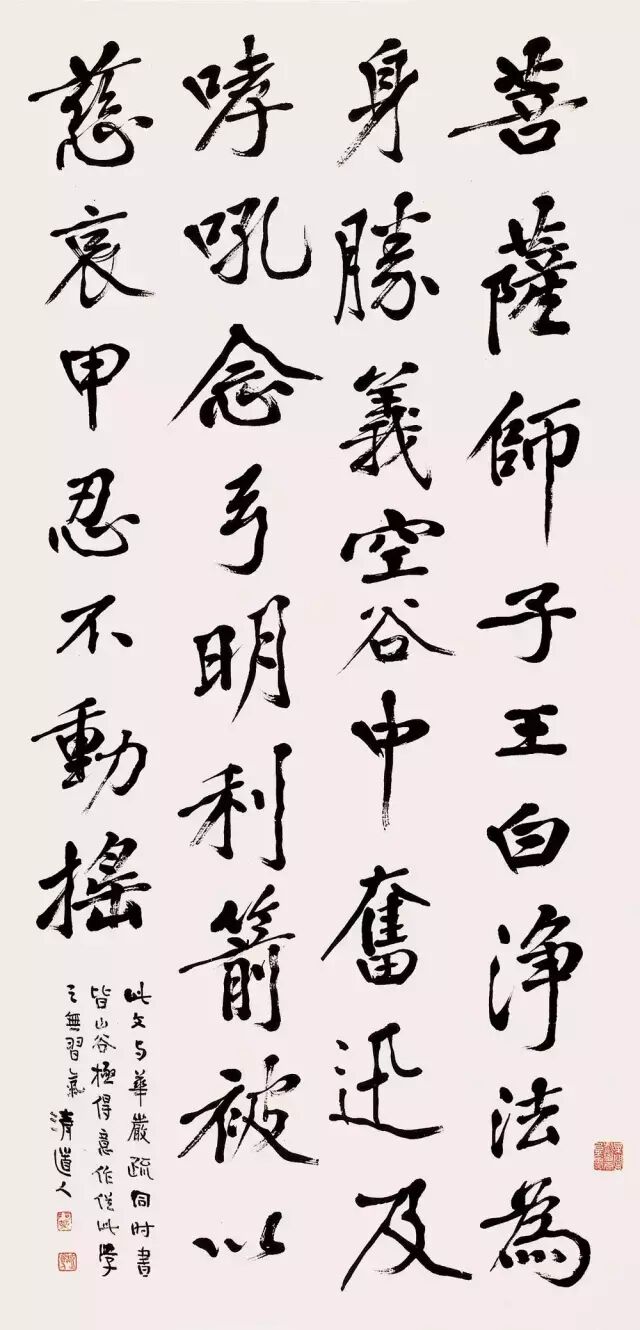 菩薩師子王白淨法為
身勝義空谷中奮迅及
哮吼念弓明利箭被以
慈哀甲忍不動搖
此文与華嚴疏同时書
皆山谷極得意作從此學
之無習氣 清道人